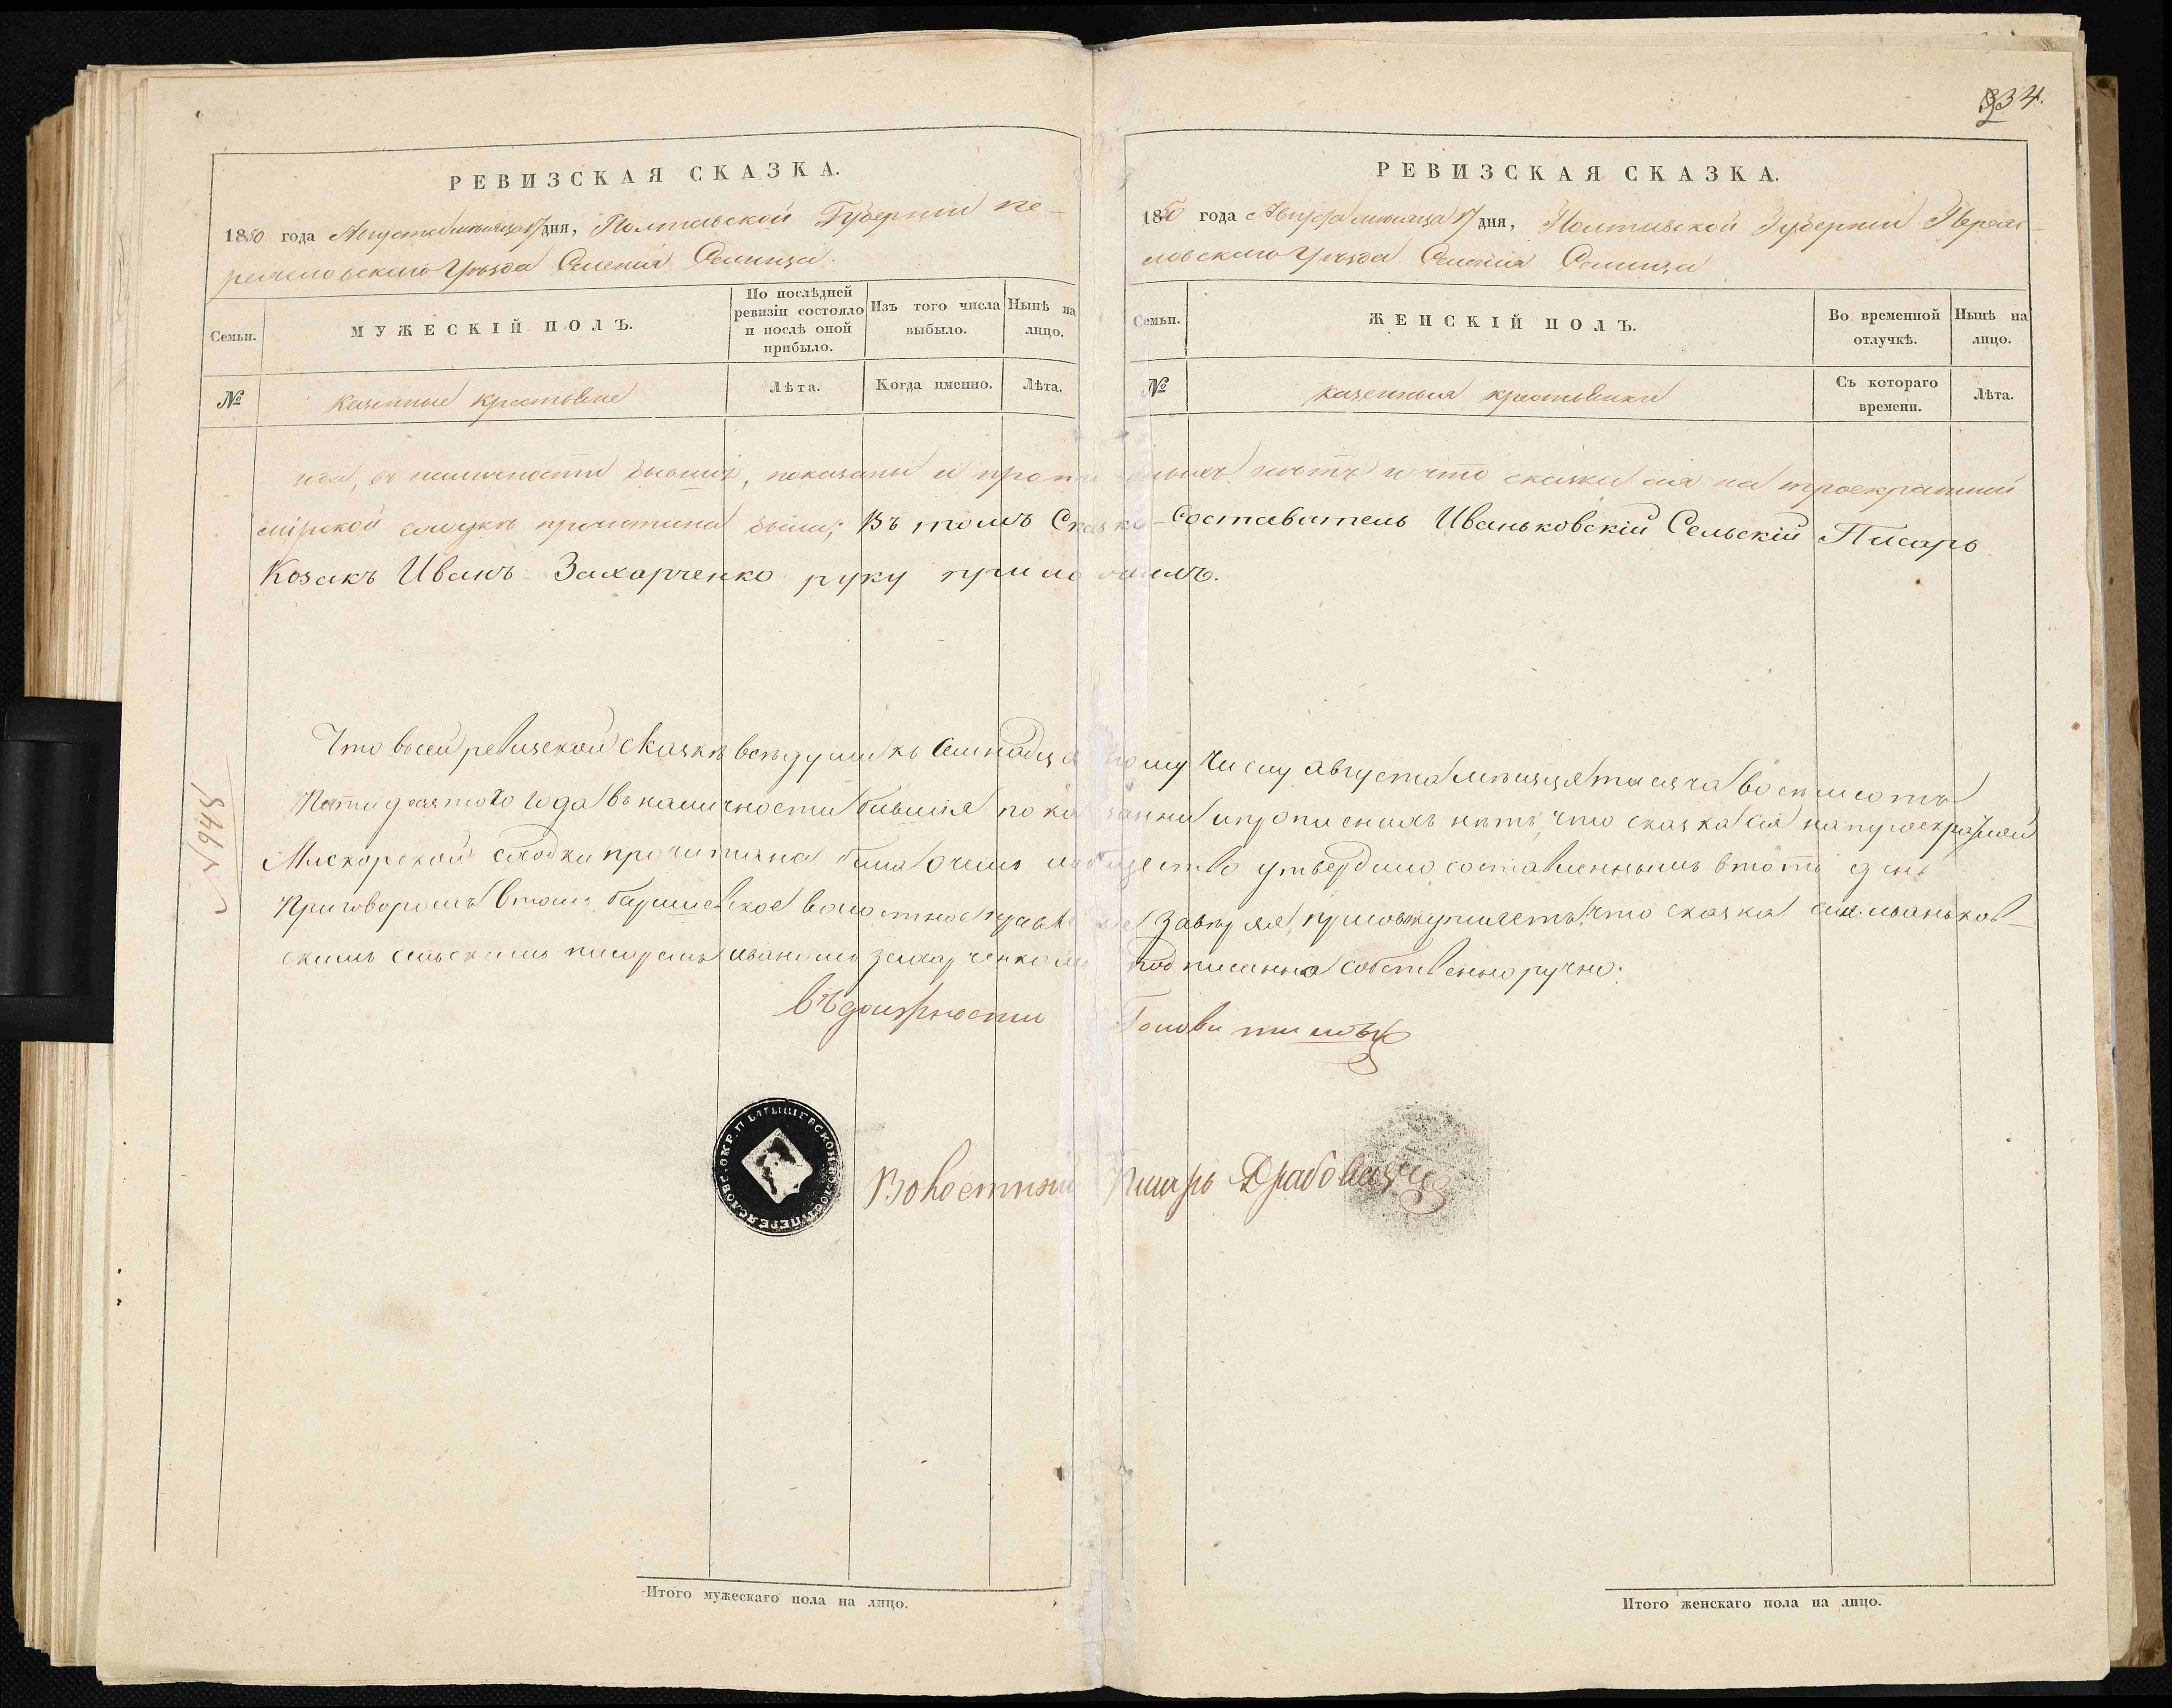 334.
РЕВИЗСКАЯ СКАЗКА.
1850 года Августа месяца 17 дня, Полтавской Губернии Пе-
реяславскаго Уезда Селенія Селища.
Семьи.
МУЖЕСКІЙ ПОЛЪ.
По послѣдней ревизіи состояло и послѣ оной прибыло.
Изъ того числа выбыло.
Нынѣ на лицо.
№
Казенные крестьяне
Лѣта.
Когда именно.
Лѣта.
РЕВИЗСКАЯ СКАЗКА.
1850 года Августа месяца 17 дня, Полтавской Губернии Переяс-
лавскаго Уезда Селенія Селища
Семьи.
ЖЕНСКІЙ ПОЛЪ.
Во временной отлучкѣ.
Нынѣ на лицо.
№
казенныя крестьянки
Съ котораго времени.
Лѣта.
въ наличности бывшия, показаны и пропи сныхъ нѣтъ и что сказка сия на троекратной
мірской сходкѣ прочитана была; Въ томъ Сказко-Составитель Иваньковскій Сельскій Писарь
Козакъ Иванъ Захарченко руку приложилъ.
Что всей ревизской сказкѣ всѣ души къ семнадцатому числу августа мѣсяца тысяча восемсотъ
Пятидесятого года въ наличности бывшія показанни и прописнихъ нѣтъ, что сказка сія на троекратной
Мирской сходки прочитана била о чемъ и общество утвердило составленнымъ втотъ день
Приговоромъ Втомъ Баришевское волостное правленіе завѣряя, присовокупляетъ что сказка сия иваньков-
скимъ сельскимъ писаремъ иваномъ захарченкомъ подписанна собственноручно.
Въ должности Голови
Волостний Писарь
№ 948
Итого мужескаго пола на лицо.
Итого женскаго пола на лицо.